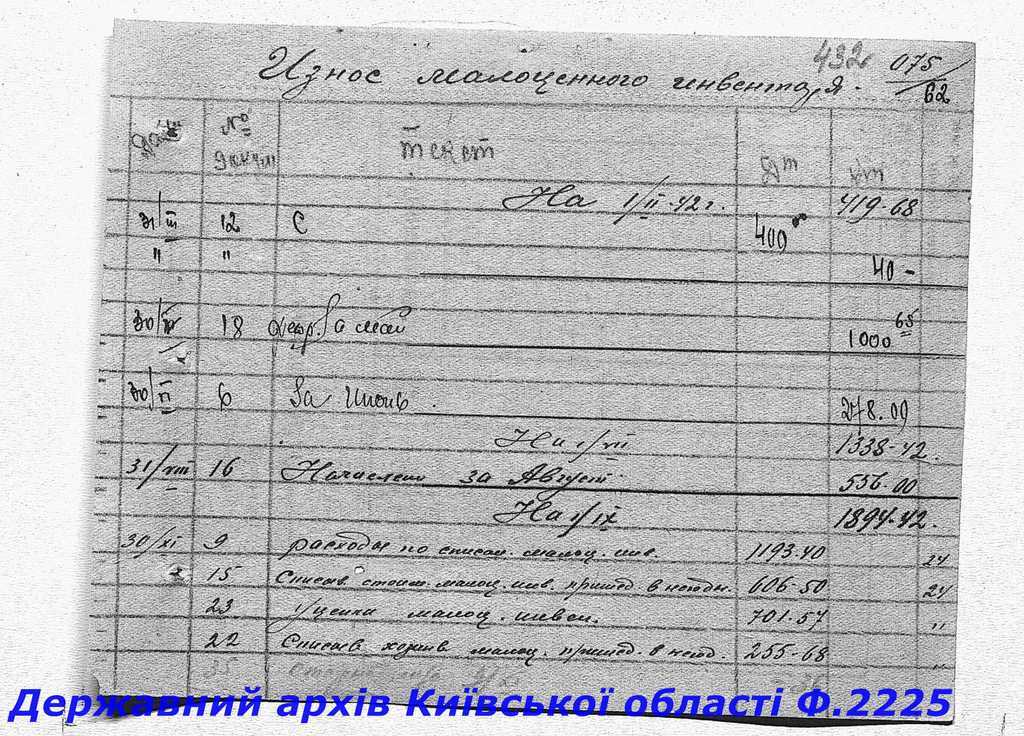 432 075/62
Износ малоценного инвентаря.
Дата № докум Текст Дт Кт
На 1/II-42 г. 419-68
31/III 12 С 400 00
" " 40 -
30/IV 18 за май 1000 65
30/VI 6 За Июнь 278.09
На 1/VII 1338-42.
31/VIII 16 Начислено за Август 556-00
На 1/IX 1894-42.
30/XI 9 расходы по списан. малоц. инв. 1193-40 24
15 Списыв. стоим. малоц. инв. пришед. в негодн. 606-50 24
23 Уценка малоц. инвен. 701-57 "
22 Списыв малоц. пришед. в негод. 255-68 "
35
Державний архів Київської області Ф.2225